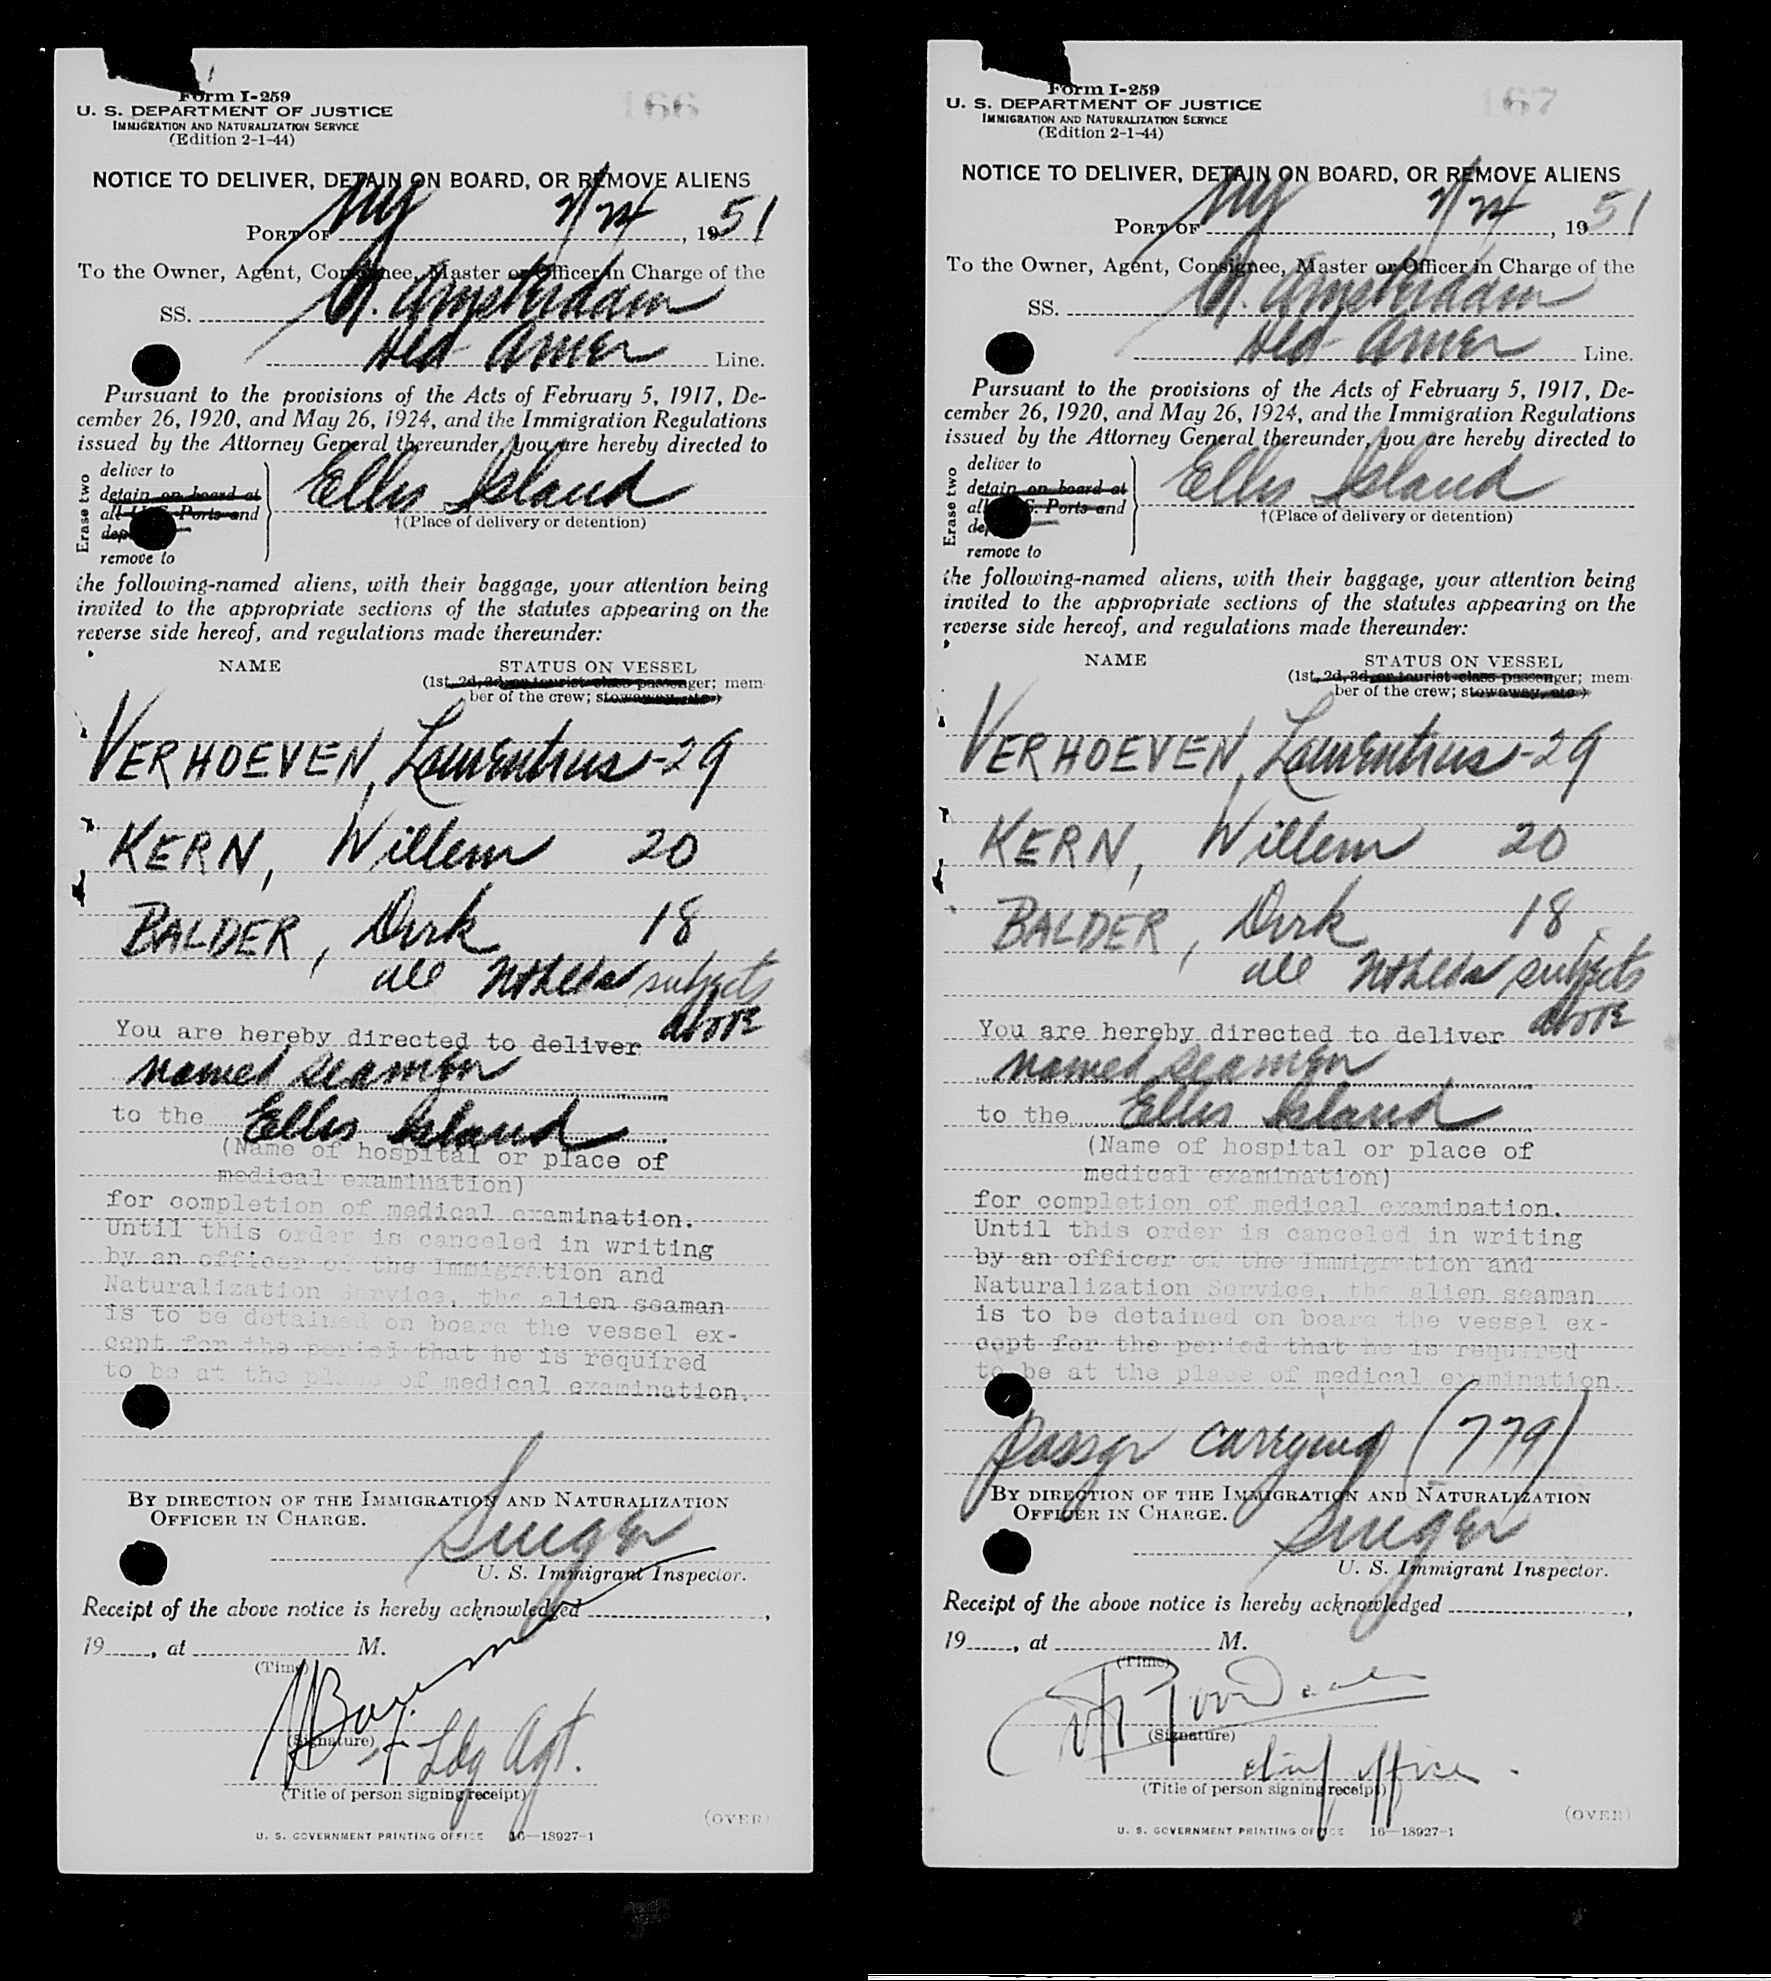 Form I-259
U. S. DEPARTMENT OF JUSTICE
IMMIGRATION AND NATURALIZATION SERVICE
(Edition 2-1-44)
166
NOTICE TO DELIVER, DETAIN ON BOARD, OR REMOVE ALIENS
PORT OF NY 2/24, 1951
To the Owner, Agent, Consignee, Master or Officer in Charge of the
SS. N. Amsterdam
Hld Amer Line.
Pursuant to the provisions of the Acts of February 5, 1917, De-
cember 26, 1920, and May 26, 1924, and the Immigration Regulations
issued by the Attorney General thereunder, you are hereby directed to
Erase two
deliver to
detain on board at
all U. S. Ports and
remove to
Ellis Island
†(Place of delivery or detention)
the following-named aliens, with their baggage, your attention being
invited to the appropriate sections of the statutes appearing on the
reverse side hereof, and regulations made thereunder:
NAME STATUS ON VESSEL
(1st, 2d, 3d, or tourist class passenger; mem-
ber of the crew; stowaway, etc.)
VERHOEVEN, Laurentius - 29
KERN, Willem 20
BALDER, Dirk 18
all Nthlds subjects
You are hereby directed to deliver above
named seamen
to the Ellis Island
(Name of hospital or place of
medical examination)
for completion of medical examination.
Until this order is canceled in writing
by an officer of the Immigration and
Naturalization Service, the alien seaman
is to be detained on board the vessel ex-
cept for the period that he is required
to be at the place of medical examination.
BY DIRECTION OF THE IMMIGRATION AND NATURALIZATION
OFFICER IN CHARGE.
Singer
U. S. Immigrant Inspector.
Receipt of the above notice is hereby acknowledged ,
19 , at M.
(Time)
(Signature)
Ldg Agt.
(Title of person signing receipt)
(OVER)
U. S. GOVERNMENT PRINTING OFFICE 16—18927-1
Form I-259
U. S. DEPARTMENT OF JUSTICE
IMMIGRATION AND NATURALIZATION SERVICE
(Edition 2-1-44)
167
NOTICE TO DELIVER, DETAIN ON BOARD, OR REMOVE ALIENS
PORT OF NY 2/24, 1951
To the Owner, Agent, Consignee, Master or Officer in Charge of the
SS. N. Amsterdam
Hld Amer Line.
Pursuant to the provisions of the Acts of February 5, 1917, De-
cember 26, 1920, and May 26, 1924, and the Immigration Regulations
issued by the Attorney General thereunder, you are hereby directed to
Erase two
deliver to
detain on board at
all U. S. Ports and
remove to
Ellis Island
†(Place of delivery or detention)
the following-named aliens, with their baggage, your attention being
invited to the appropriate sections of the statutes appearing on the
reverse side hereof, and regulations made thereunder:
NAME STATUS ON VESSEL
(1st, 2d, 3d, or tourist class passenger; mem-
ber of the crew; stowaway, etc.)
VERHOEVEN, Laurentius - 29
KERN, Willem 20
BALDER, Dirk 18
all Nthlds subjects
You are hereby directed to deliver above
named seamen
to the Ellis Island
(Name of hospital or place of
medical examination)
for completion of medical examination.
Until this order is canceled in writing
by an officer of the Immigration and
Naturalization Service, the alien seaman
is to be detained on board the vessel ex-
cept for the period that he is required
to be at the place of medical examination.
Passgr carrying (779)
BY DIRECTION OF THE IMMIGRATION AND NATURALIZATION
OFFICER IN CHARGE.
Singer
U. S. Immigrant Inspector.
Receipt of the above notice is hereby acknowledged ,
19 , at M.
(Time)
(Signature)
chief office
(Title of person signing receipt)
(OVER)
U. S. GOVERNMENT PRINTING OFFICE 16—18927-1